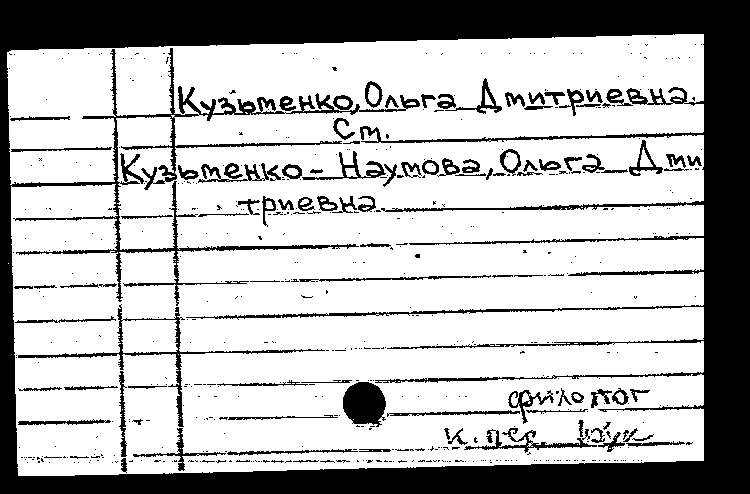 Кузьменко, Ольга Дмитриевна.
См.
Кузьменко-Наумова, Ольга Дми
триевна.
филолог
к. пед. наук